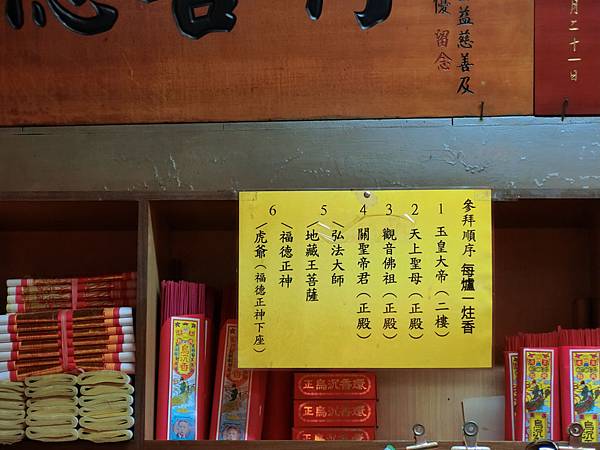 益慈善及
優 留念
月二十一日
參拜順序 每爐一炷香
1 玉皇大帝（二樓）
2 天上聖母（正殿）
3 觀音佛祖（正殿）
4 關聖帝君（正殿）
5 弘法大師
地藏王菩薩
6 福德正神
虎爺（福德正神下座）
烏沉香
正烏沉香環
正烏沉香環
正烏沉香環
烏沉
烏沉